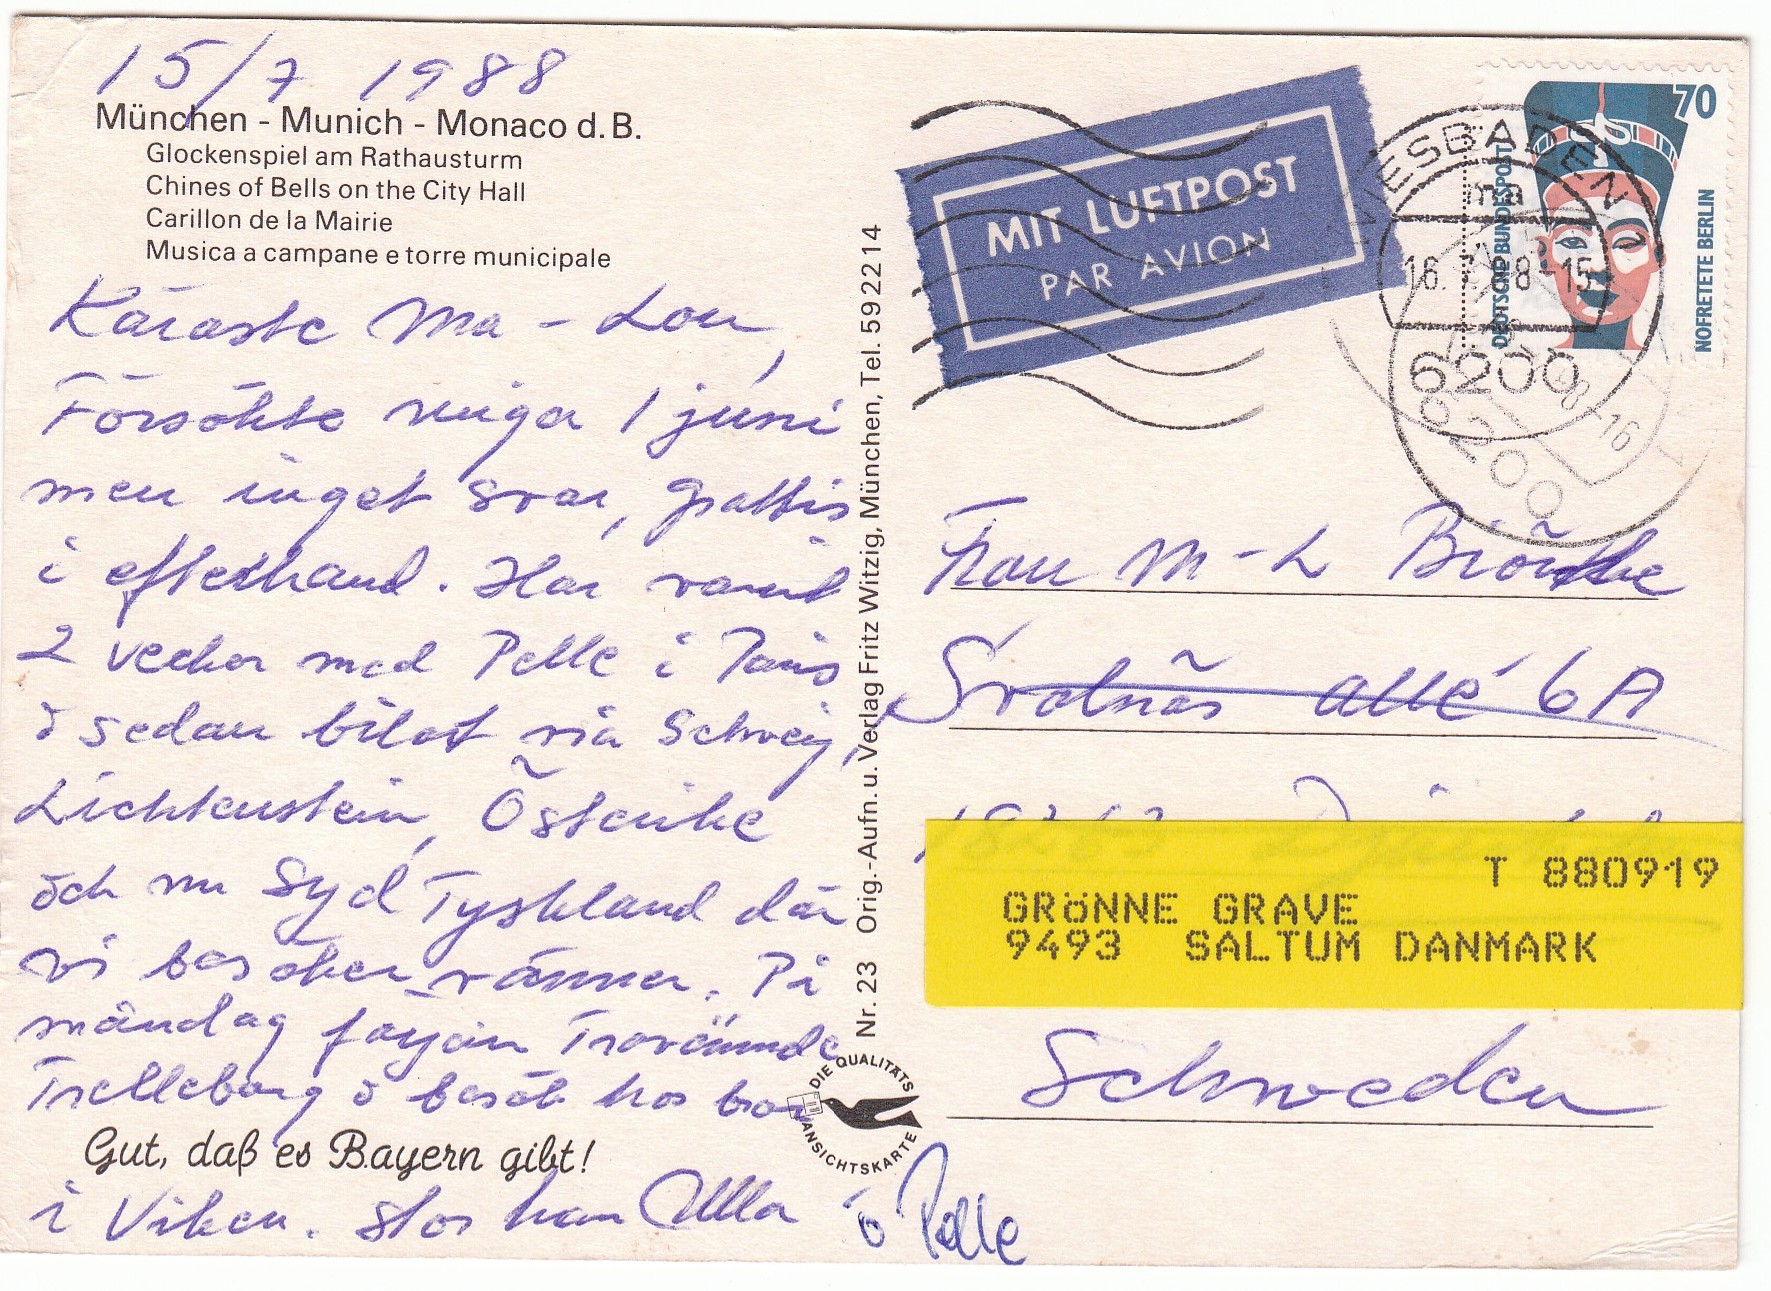 15/7 1988
München - Munich - Monaco d. B.
Glockenspiel am Rathausturm
Chines of Bells on the City Hall
Carillon de la Mairie
Musica a campane e torre municipale
Käraste Ma-Lou,
Försökte ringa 1 juni
men inget svar, grattis
i efterhand. Har varit
2 veckor med Pelle i Paris
ö sedan bilat via Schweiz,
Lichtenstein, Österrike
öch nu Syd Tyskland där
vi besöker vänner. På
måndag färjan Travemünde
Trelleborg ö besök hos
Gut, daß es Bayern gibt!
i Viken. Stor kram Ulla ö Pelle
Nr. 23 Orig.-Aufn. u. Verlag Fritz Witzig, München, Tel. 59 22 14
DIE QUALITÄTS
ANSICHTSKARTE
MIT LUFTPOST
PAR AVION
70
DEUTSCHE BUNDESPOST
NOFRETETE BERLIN
WIESBADEN
ma
16. 88-15
6200
-16
6200
Frau M-L
Svalnäs allé 6A
18263
T 880919
GRÖNNE GRAVE
9493 SALTUM DANMARK
Schweden